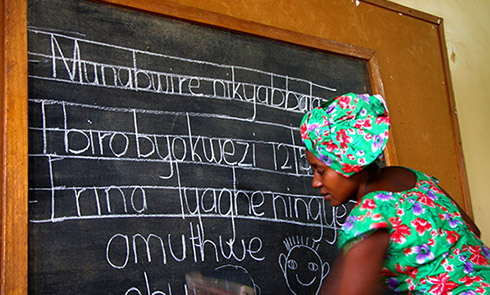 Munabwire nikyabbala
Ebiro byokwezi 12
Erina lyaghe ningye
omuthwe